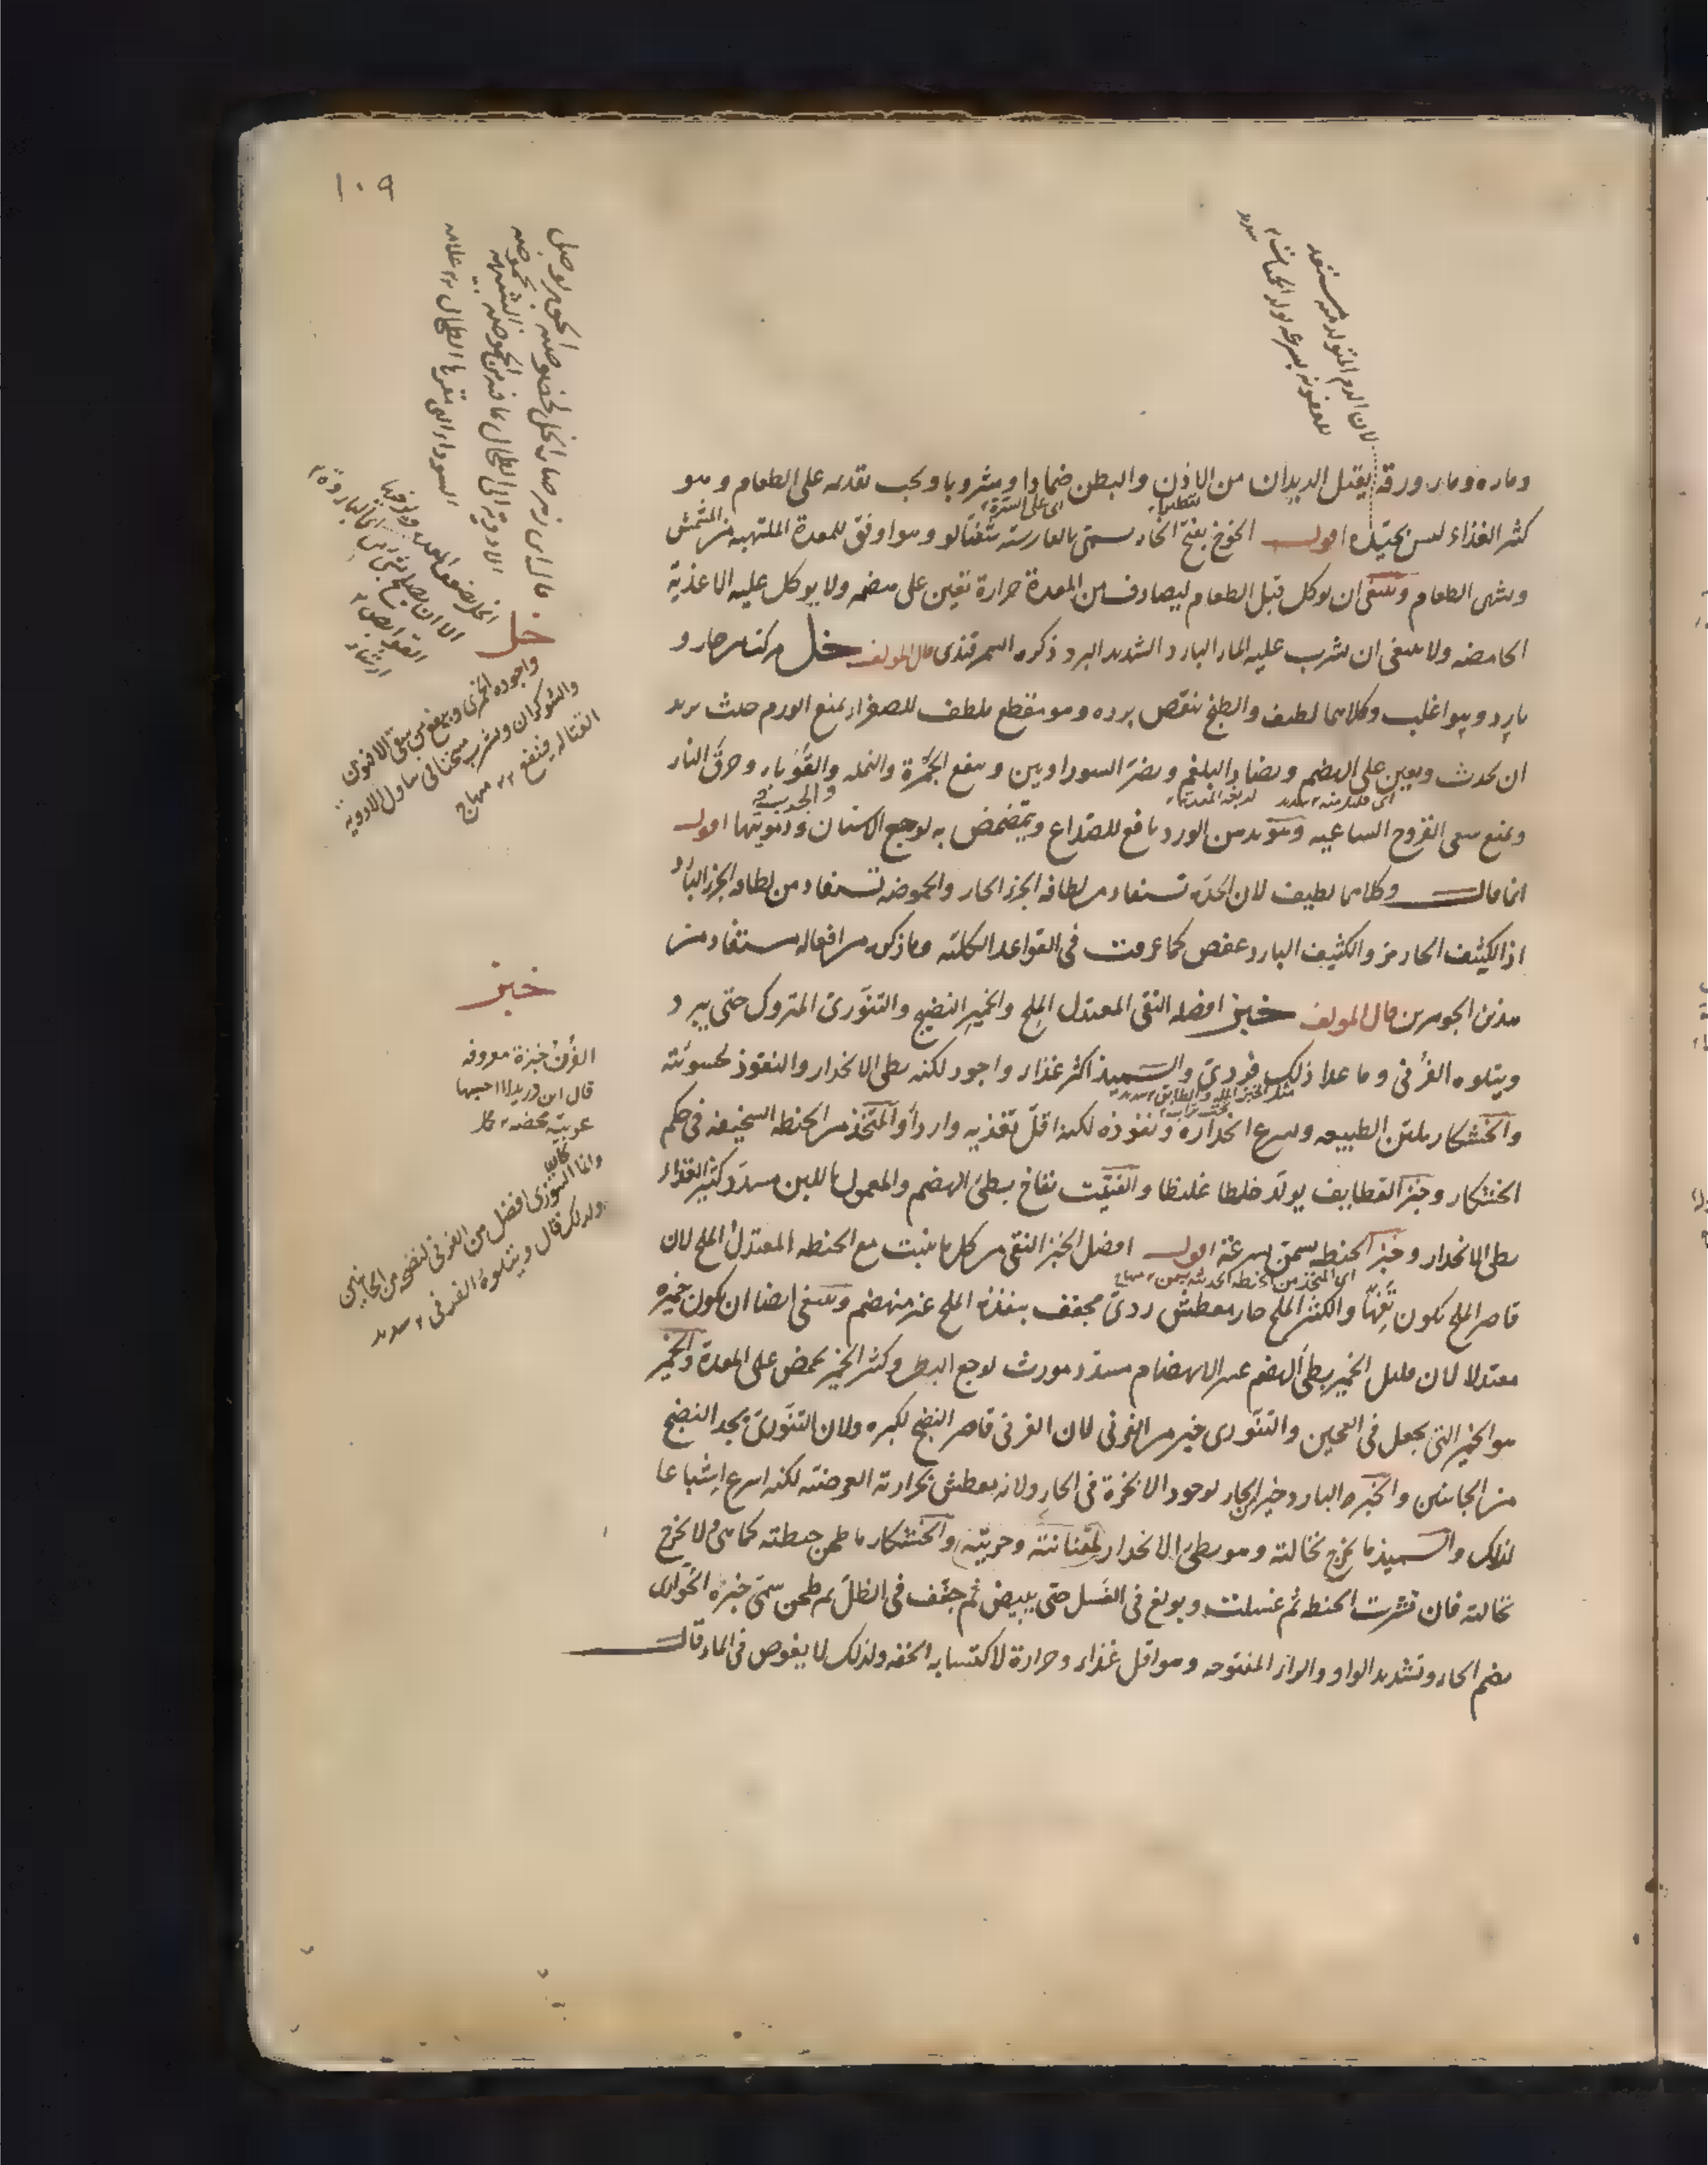 ١٠٩
لان الدم المتولد منه مستعد
للعفونة بسرعة تولد الحميات
سديد
وماؤه وماء ورقه يقتل الديدان من الاذن والبطن ضمادا ومشروبا ويجب تقديمه على الطعام وهو
تقطيرا
اى على السرة
كثير الغذاء ليس بجيده اقول الخوخ بفتح الخاء يسمى بالفارسية شفتالو وهو اوفق للمعدة الملتهبة من المشمش
ويشهى الطعام وينبغى ان يوكل قبل الطعام ليصادف من المعدة حرارة تعين على هضمه ولا يوكل عليه الاغذية
الحامضه ولا ينبغى ان يشرب عليه الماء البارد الشديد البرد ذكره السمرقندى قال المولف خل مركب من حار و
بارد وهو اغلب وكلاهما لطيف والطبخ ينقص برده وهو مقطع ملطف للصفراء يمنع الورم حيث يريد
ان يحدث ويعين على الهضم ويضاد البلغم ويضر السوداويين وينفع الجمرة والنملة والقوباء وحرق النار
والجرب
اى قليل منه سديد
لدبغه المعدة
ويمنع سعى القروح الساعيه ومع دهن الورد نافع للصداع ويتمضمض به لوجع الاسنان ودمويتها اقول
انما قال وكلاهما لطيف لان الحدة تستفاد من لطافة الجزء الحار والحموضة تستفاد من لطافة الجزء البارد
اذ الكثيف الحار مر والكثيف البارد عفص كما عرفت فى القواعد الكلية وما ذكره من افعاله مستفاد من
هذين الجوهرين قال المولف خبز افضله النقى المعتدل الملح والخمير النضيج والتنورى المتروك حتى يبرد
ويتلوه الفرنى وما عدا ذلك فردى والسميذ اكثر غذاء واجود لكنه بطى الانحدار والنفوذ لخشونته
مثل الخبز المله والطابق سديد
تحت تراب
والخشكار يلين الطبيعه ويسرع انحداره ونفوذه لكنه اقل تغذيه واردأ والمتخذ من الحنطه السخيفه فى حكم
الخشكار وخبز القطايف يولد خلطا غليظا والفتيت نفاخ بطئ الهضم والمعمول باللبن مسدد كثير الغذاء
بطى الانحدار وخبز الحنطه يسمن بسرعة اقول افضل الخبز النقى من كل ما ينبت مع الحنطه المعتدل الملح لان
اى المتخذ من الحنطه الحديثه يسمن منهاج
قاصر الملح يكون تفها والكثير الملح حار معطش ردى مجفف ينفذه الملح غير منهضم وينبغى ايضا ان يكون خميره
معتدلا لان قليل الخمير بطى الهضم عسر الانهضام مسدد مورث لوجع البطن وكثير الخمير يحمض على المعدة والخمير
هو الخمير التى يجعل فى العجين والتنورى خير من الفرنى لان الفرنى قاصر النضج لكبره ولان التنورى يجد النضج
من الجانبين والخبز البارد خير الحار لوجود الابخرة فى الحار ولانه يعطش بحرارته العرضيه لكنه اسرع اشباعا
لذلك والسميذ ما يخرج نخالته وهو بطئ الانحدار لمتانته وحريته والخشكار ما طحن حنطته كما هى ولا يخرج
نخالته فان قشرت الحنطه ثم غسلت وبولغ فى الغسل حتى يبيض ثم جفف فى الظل ثم طحن سمى خبزه الحوارى
بضم الحاء وتشديد الواو والراء المفتوحه وهو اقل غذاء وحرارة لاكتسابه الخفه ولذلك لا يغوص فى الماء قال
خل
واجوده الخمرى وينفع من سقى الافيون
والشوكران ويشرب مسخنا لمن تناول الادوية
القتاله فينفع منهاج
خبز
الفرن خبزة معروفه
قال ابن دريد لا احسبها
عربية محضه
وانما التنورى افضل من الفرنى لنضجه من الجانبين
ولذلك قال ويتلوه الفرنى سديد